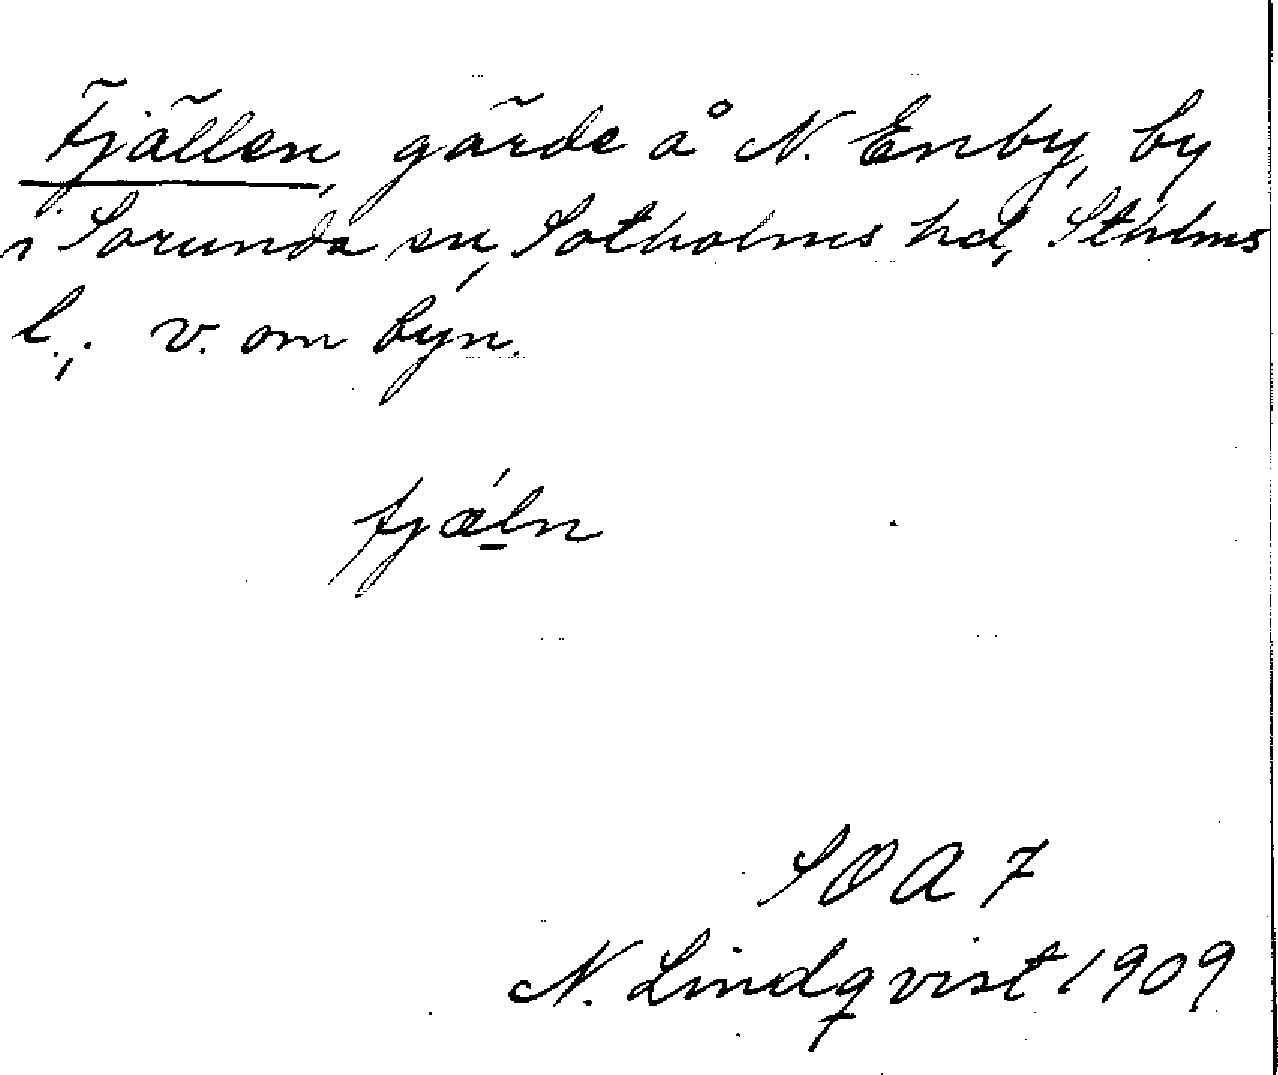 Fjällen, gärde å N. Enby, by
i Sorunda sn, Sotholms hd, Sthlms
l.; v. om byn.
fjǽln
SOA 7
N. Lindqvist 1909